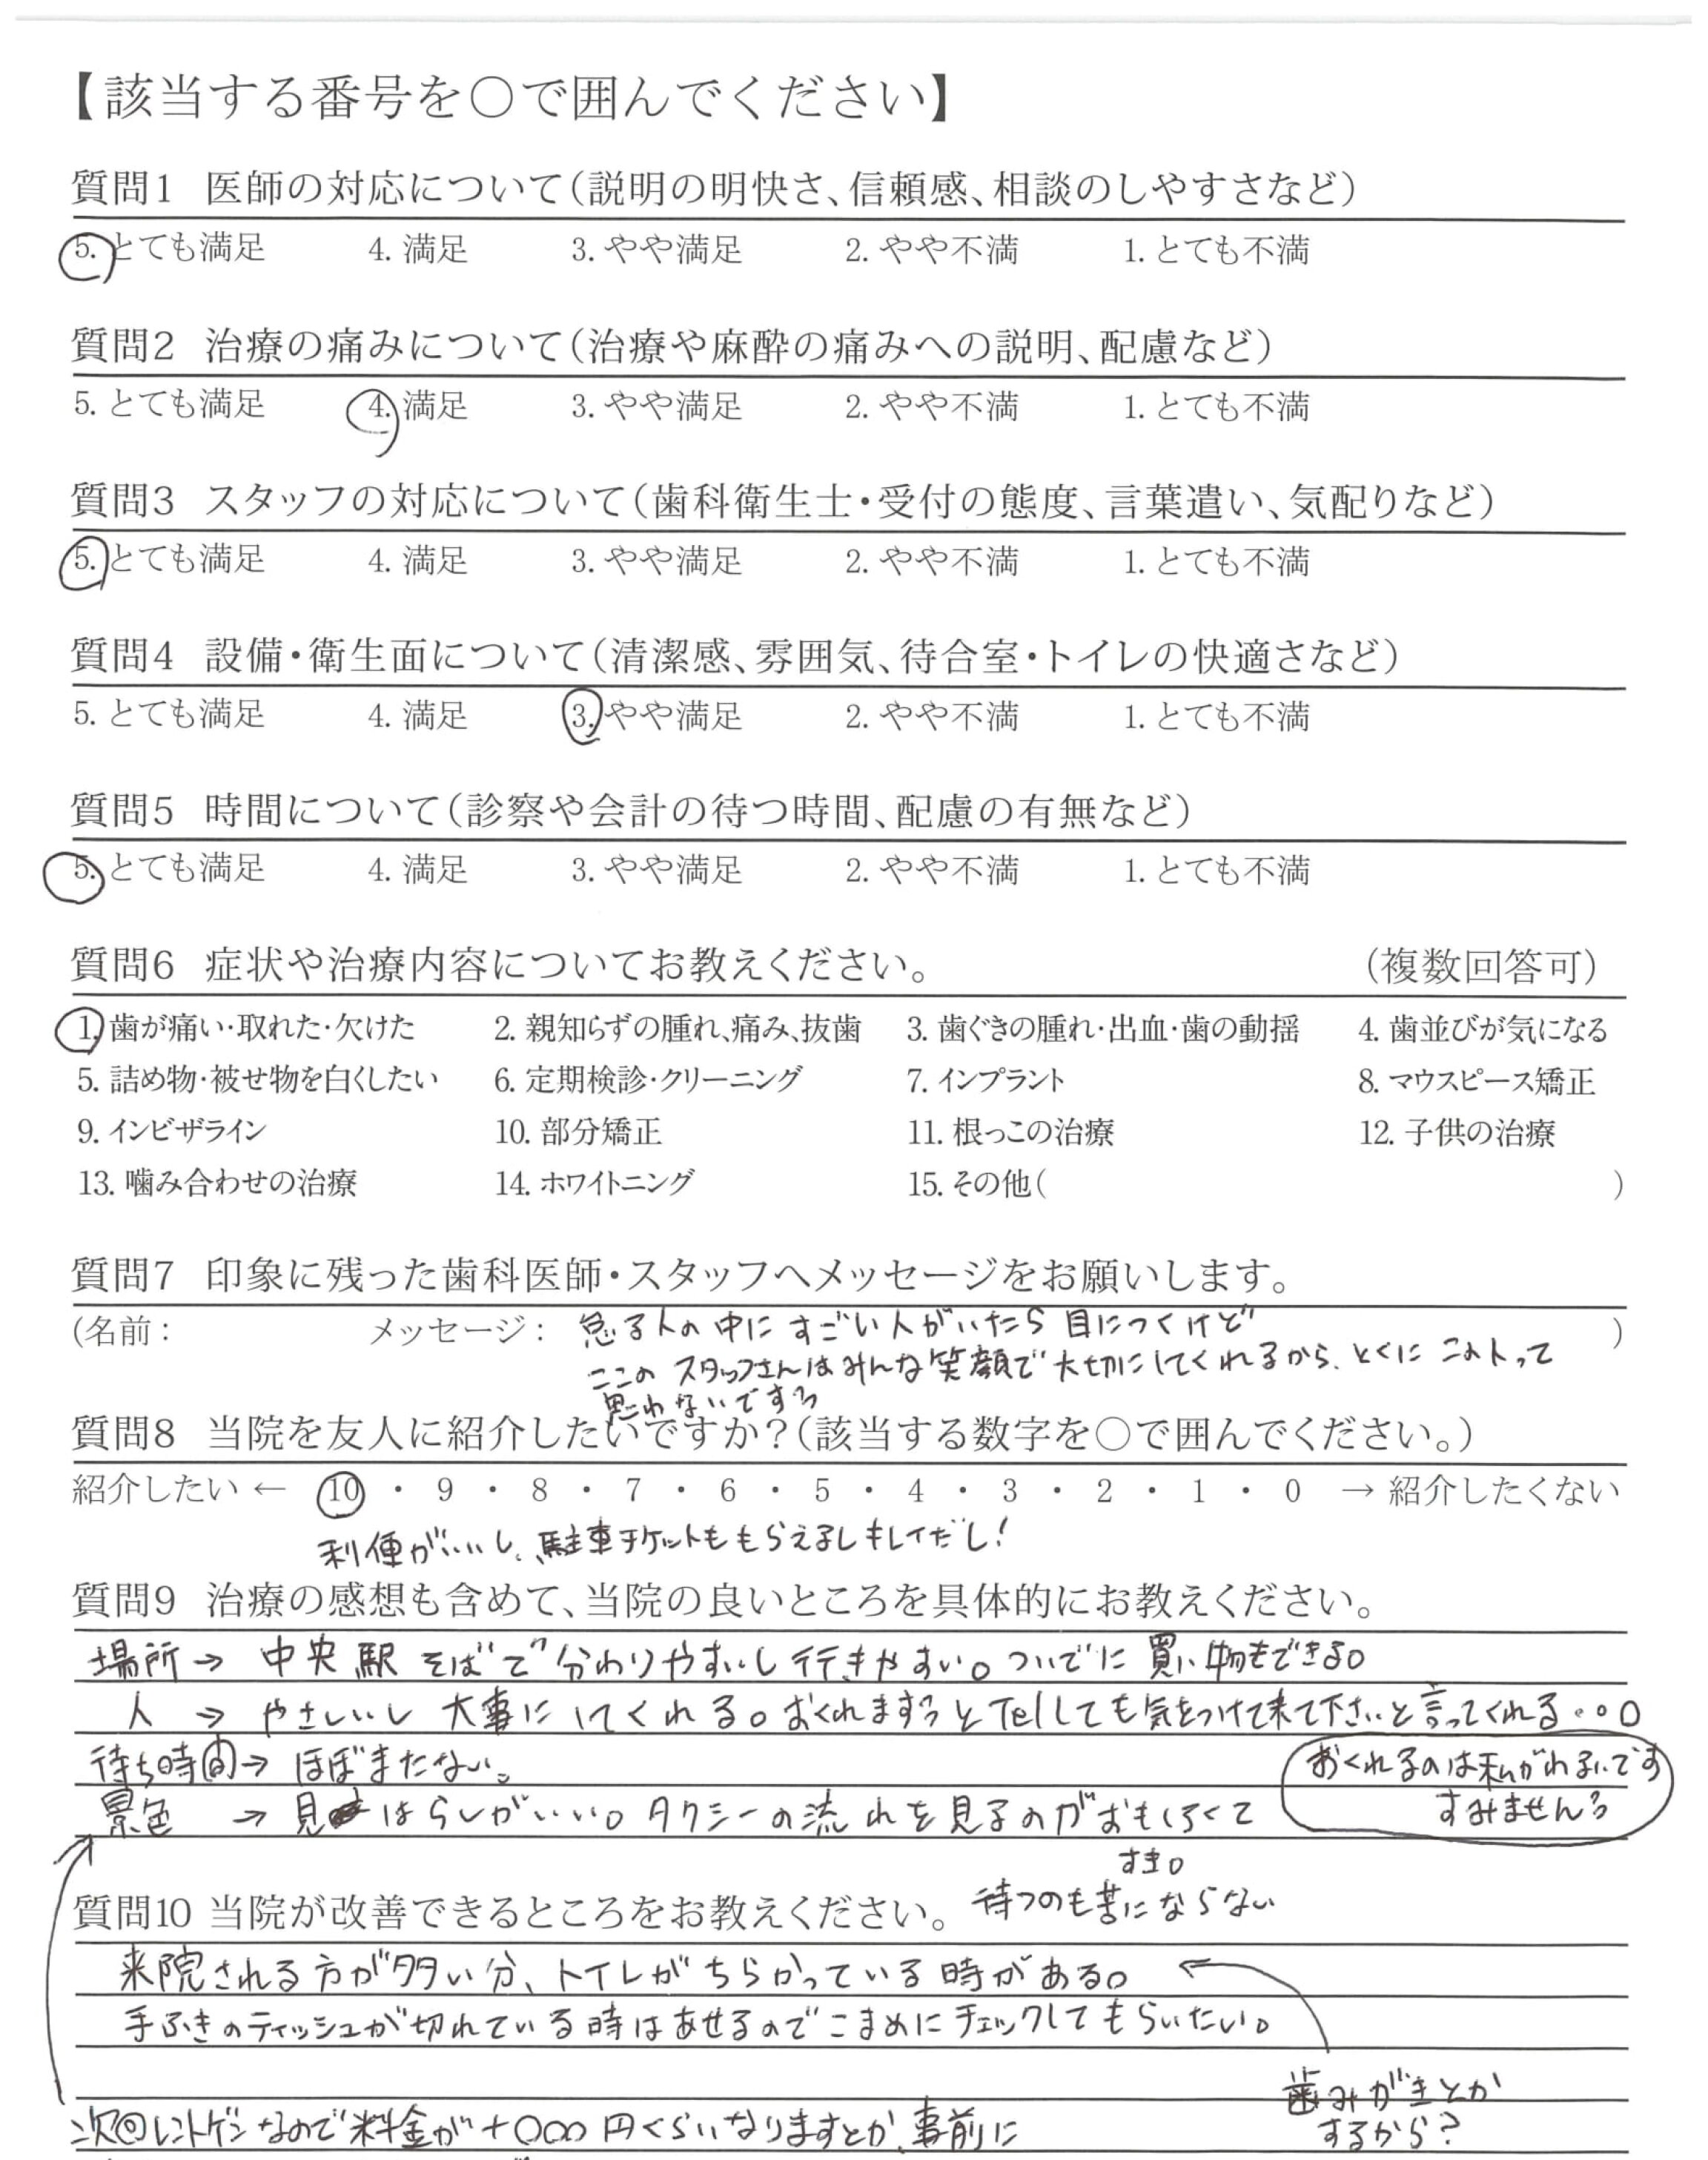 【該当する番号を○で囲んでください】
質問1 医師の対応について(説明の明快さ、信頼感、相談のしやすさなど)
5. とても満足 4. 満足 3. やや満足 2. やや不満 1. とても不満
質問2 治療の痛みについて(治療や麻酔の痛みへの説明、配慮など)
5. とても満足 4. 満足 3. やや満足 2. やや不満 1. とても不満
質問3 スタッフの対応について(歯科衛生士・受付の態度、言葉遣い、気配りなど)
5. とても満足 4. 満足 3. やや満足 2. やや不満 1. とても不満
質問4 設備・衛生面について(清潔感、雰囲気、待合室・トイレの快適さなど)
5. とても満足 4. 満足 3. やや満足 2. やや不満 1. とても不満
質問5 時間について(診察や会計の待つ時間、配慮の有無など)
5. とても満足 4. 満足 3. やや満足 2. やや不満 1. とても不満
質問6 症状や治療内容についてお教えください。 (複数回答可)
1. 歯が痛い・取れた・欠けた 2. 親知らずの腫れ、痛み、抜歯 3. 歯ぐきの腫れ・出血・歯の動揺 4. 歯並びが気になる
5. 詰め物・被せ物を白くしたい 6. 定期検診・クリーニング 7. インプラント 8. マウスピース矯正
9. インビザライン 10. 部分矯正 11. 根っこの治療 12. 子供の治療
13. 噛み合わせの治療 14. ホワイトニング 15. その他( )
質問7 印象に残った歯科医師・スタッフへメッセージをお願いします。
(名前: メッセージ: 怠る人の中にすごい人がいたら目につくけど )
ここのスタッフさんはみんな笑顔で大切にしてくれるから、とくにこの人って
思わないです
質問8 当院を友人に紹介したいですか?(該当する数字を○で囲んでください。)
紹介したい ← 10 ・ 9 ・ 8 ・ 7 ・ 6 ・ 5 ・ 4 ・ 3 ・ 2 ・ 1 ・ 0 → 紹介したくない
利便がいいし、駐車チケットももらえるしキレイだし!
質問9 治療の感想も含めて、当院の良いところを具体的にお教えください。
場所→ 中央駅そばで分わりやすいし行きやすい。ついでに買い物もできる。
人 → やさしいし大事にしてくれる。おくれますとTelしても気をつけて来て下さいと言ってくれる・・。
待ち時間→ ほぼまたない。
おくれるのは私がわるいです
すみません
景色 → 見はらしがいい。タクシーの流れを見るのがおもしろくて
すき。
待つのも苦にならない
質問10 当院が改善できるところをお教えください。
来院される方が多い分、トイレがちらかっている時がある。 ←
手ふきのティッシュが切れている時はあせるのでこまめにチェックしてもらいたい。
歯みがきとか
するから?
次回レントゲンなので料金が+○○○円くらいなりますとか、事前に